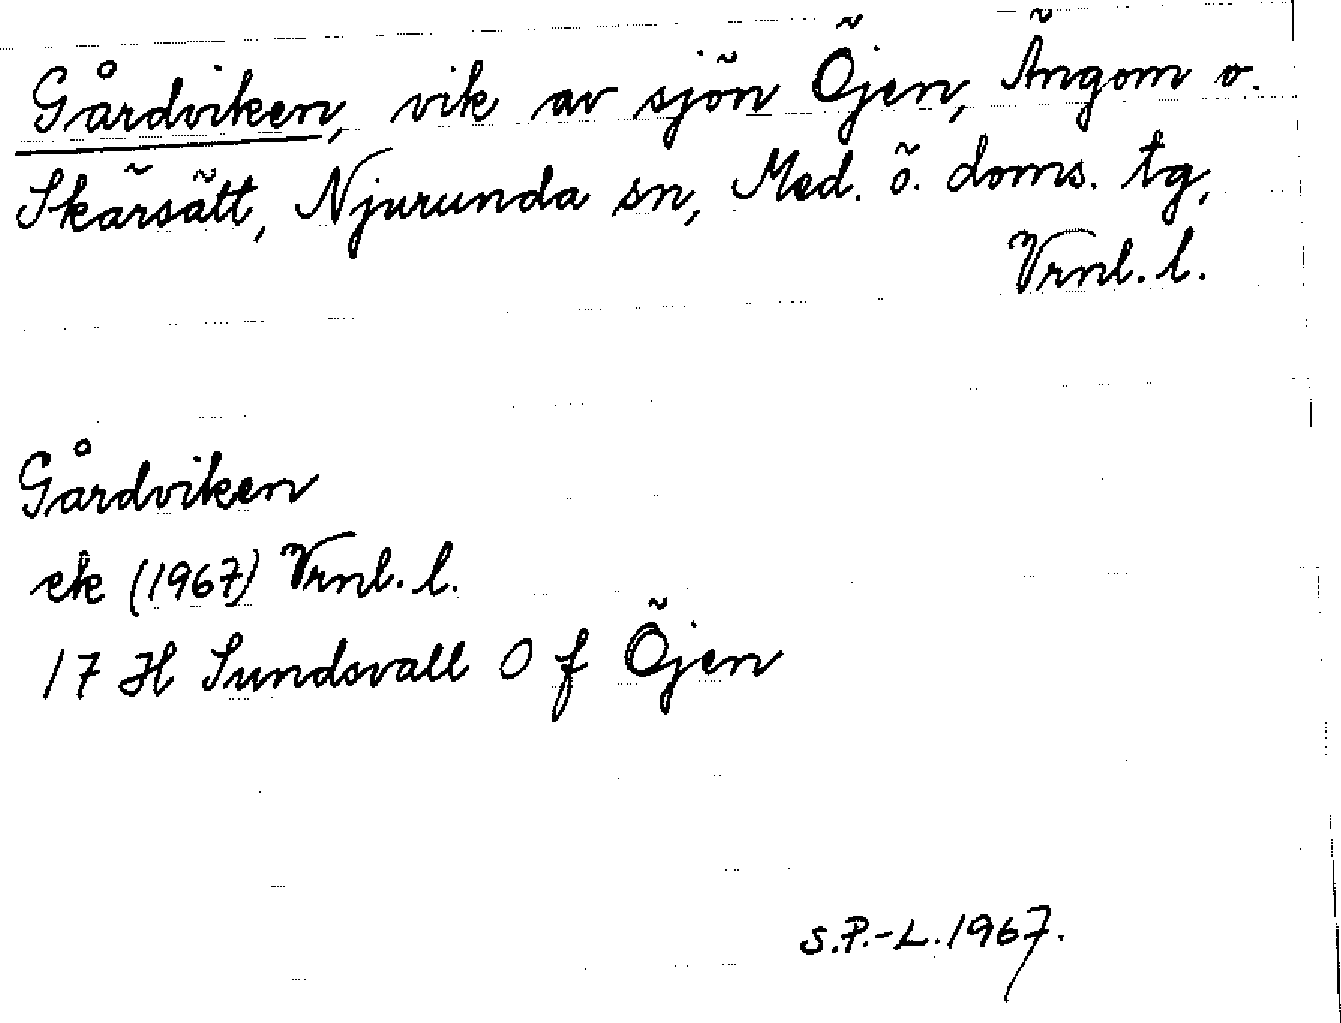 Gårdviken, vik av sjön Öjen, Ängom o.
Skärsätt, Njurunda sn, Med. ö. doms. tg,
Vrnl. l.
Gårdviken
ek (1967) Vrnl. l.
17 H Sundsvall O f Öjen
S.P.-L. 1967.